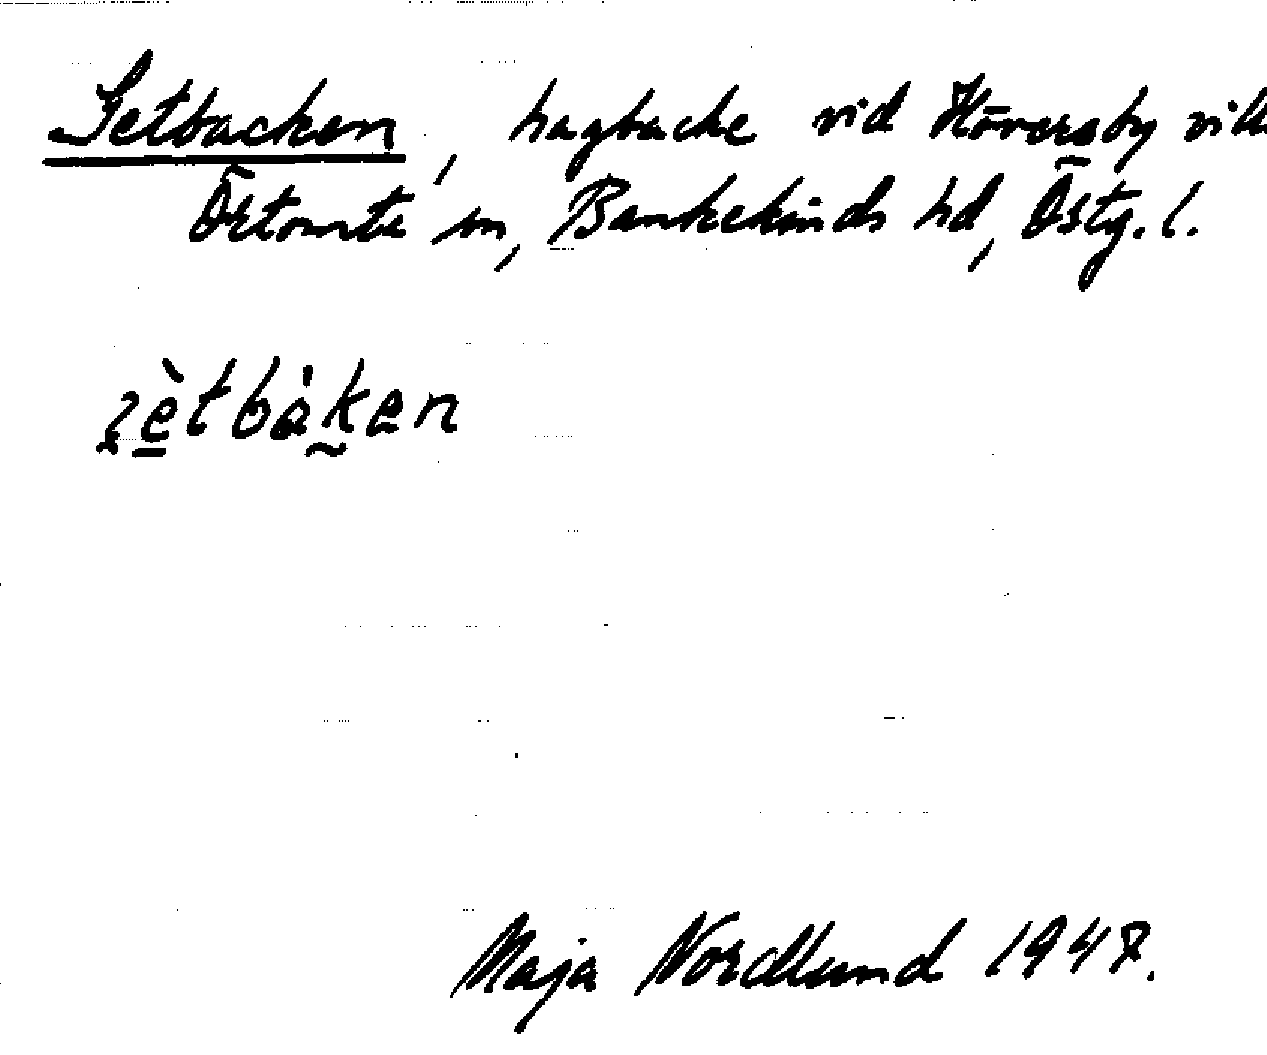 Jetbacken, hagbacke vid Höversby vill
Örtomta sn, Bankekinds hd, Östg. l.
jètbàken
Maja Nordlund 1947.